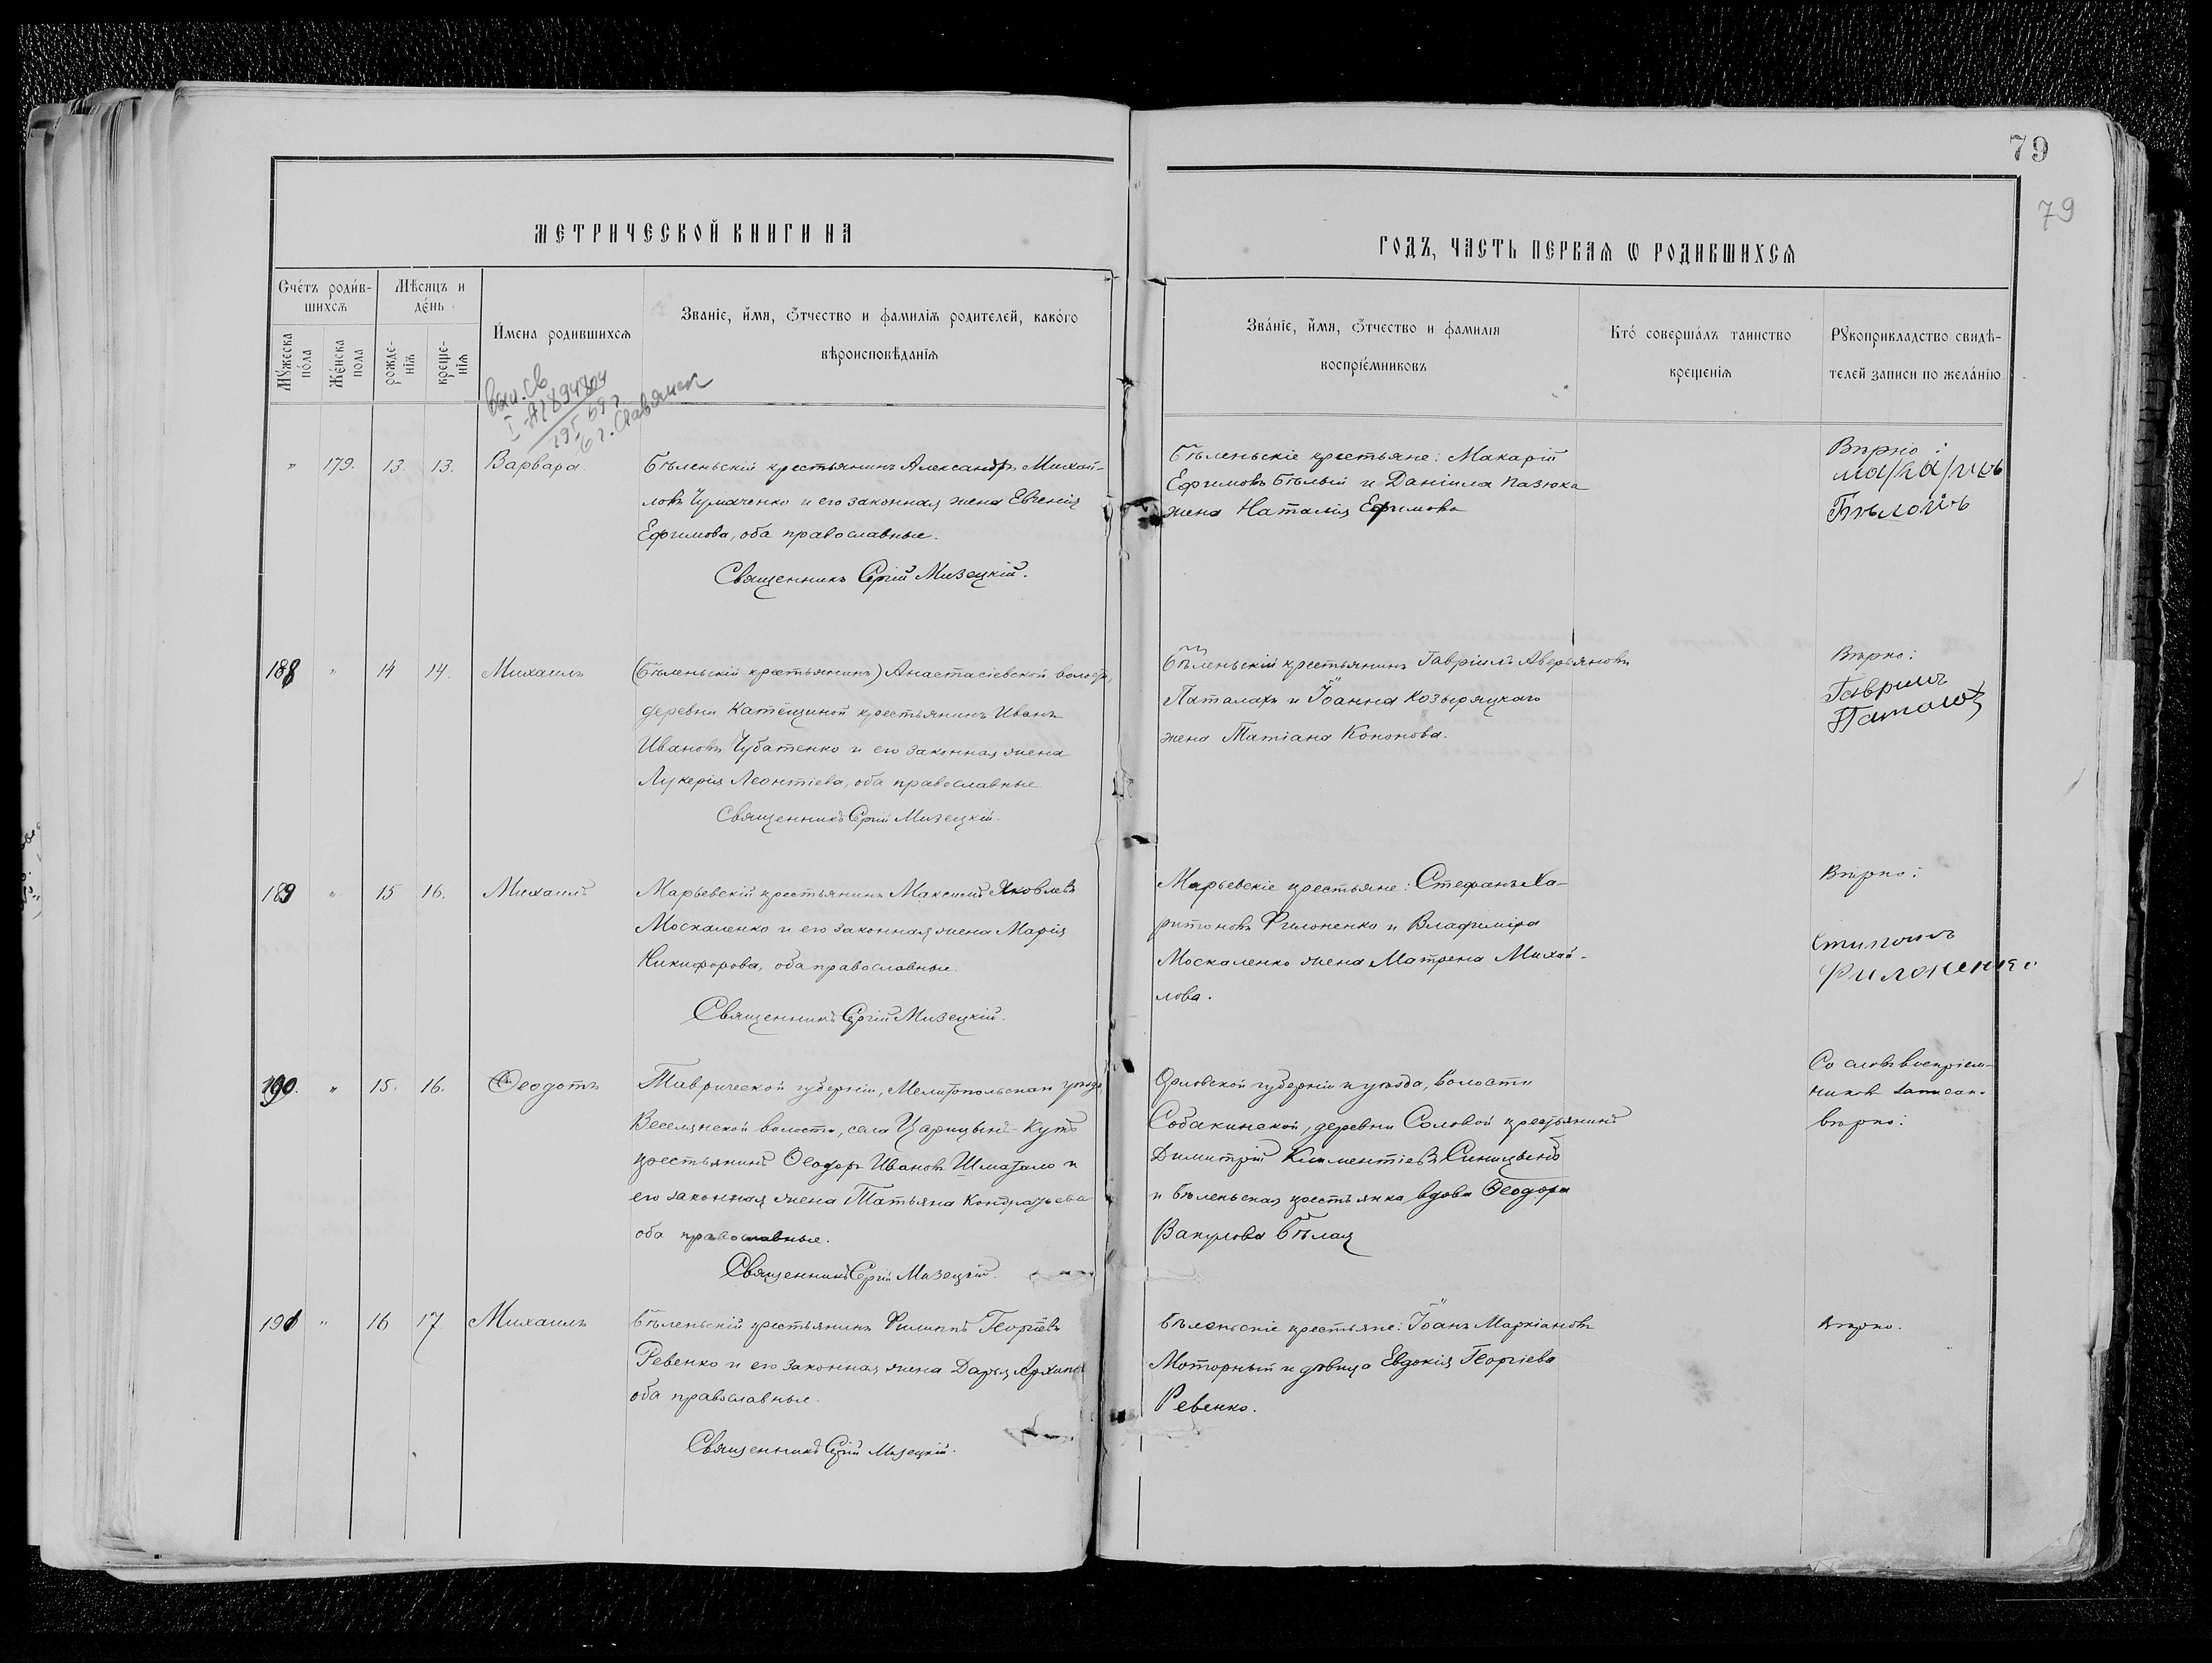 79
79
МЕТРИЧЕСКОЙ КНИГИ НА
ГОДЪ, ЧАСТЬ ПЕРВАЯ Ѡ РОДИВШИХСЯ
Счетъ родив-
шихся
Мѣсяцъ и
день
Имена родившихся
Званіе, имя, ѻтчество и фамилія родителей, какого
вѣроисповѣданія
Мужеска
пола
Женска
пола
рожде-
нія
креще-
нія
Званіе, имя, ѻтчество и фамилія
воспріемниковъ
Кто совершалъ таинство
крещенія
Рукоприкладство свидѣ-
телей записи по желанію
" 179. 13. 13. Варвара
Бѣленьскій крестьянинъ Александръ Михай-
ловъ Чумаченко и его законная жена Евгенія
Ефимова, оба православные.
Священникъ Сергій Мизецкій.
Бѣленьскіе крестьяне: Макарій
Ефимовъ Бѣлый и Даніила Пазюка
жена Наталія Ефимова
Вѣрно:
Бѣлой
188 " 14 14. Михаилъ
(Бѣленьскій крестьянинъ) Анастасіевской волости,
деревни крестьянинъ Иванъ
Ивановъ Чубатенко и его законная жена
Лукерія Леонтіева, оба православные.
Священникъ Сергій Мизецкій.
Бѣленьскій крестьянинъ Гавріилъ Аверьяновъ
Паталахъ и Іоанна Козыряцкаго
жена Татіана Кононова.
Вѣрно:
Гавриилъ
189 " 15 16. Михаилъ
Марьевскій крестьянинъ Максимъ Яковлевъ
Москаленко и его законная жена Марія
Никифорова, оба православные.
Священникъ Сергій Мизецкій.
Марьевскіе крестьяне: Стефанъ Ха-
ритоновъ Филоненко и Владиміра
Москаленко жена Матрена Михай-
лова.
Вѣрно:
Филоненко
190. " 15. 16. Ѳеодотъ
Таврической губерніи, Мелитопольскаго уѣзда,
Веселянской волости, села Царицынъ-Кутъ
крестьянинъ Ѳеодоръ Ивановъ Шматало и
его законная жена Татьяна Кондратьева
оба православные.
Священникъ Сергій Мизецкій.
Орловской губерніи и уѣзда, волости
Собакинской, деревни Соловой крестьянинъ
Димитрій Климентіевъ Синицынъ
и Бѣленьская крестьянка вдова Ѳеодора
Вакулова Бѣлая
Со словъ воспріем-
никовъ записан.
вѣрно:
191 " 16 17 Михаилъ
Бѣленьскій крестьянинъ Филиппъ Георгіевъ
Ревенко и его законная жена Дарья Архипова
оба православные.
Священникъ Сергій Мизецкій.
Бѣленьскіе крестьяне: Іоанъ Маркіановъ
Моторный и дѣвица Евдокія Георгіева
Ревенко.
Вѣрно.